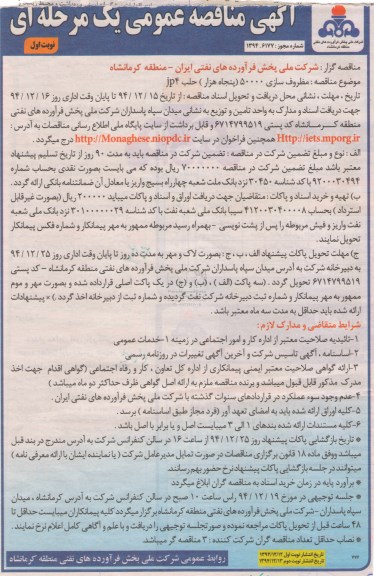 آگهی مناقصه عمومی یک مرحله ای
شماره مجوز: ۱۳۹۴.۶۱۷۷
نوبت اول
مناقصه گزار: شرکت ملی پخش فرآورده های نفتی ایران – منطقه کرمانشاه
موضوع مناقصه: مظروف سازی ۵۰۰۰۰ (پنجاه هزار) حلب jp4
تاریخ، مهلت، نشانی محل دریافت و تحویل اسناد مناقصه: از تاریخ ۹۴/۱۲/۱۵ تا پایان وقت اداری روز ۹۴/۱۲/۱۶
جهت دریافت اسناد و مدارک به واحد تامین و توزیع به نشانی میدان سپاه پاسداران شرکت ملی پخش فرآورده های نفتی
منطقه کرمانشاه کد پستی ۶۷۱۴۷۹۹۵۱۹ و قابل برداشت از سایت پایگاه ملی اطلاع رسانی مناقصات به آدرس:
Http://iets.mporg.ir همچنین فراخوان در سایت http://Monaghese.niopdc.ir درج میگردد.
الف: نوع و مبلغ تضمین شرکت در مناقصه: تضمین شرکت در مناقصه باید به مدت ۹۰ روز از تاریخ تسلیم پیشنهاد
معتبر باشد مبلغ تضمین شرکت در مناقصه ۷۰۰۰۰۰۰۰ ریال بوده که می بایست بصورت نقدی بحساب شماره
با کد شناسه ۳۰۴۵۰ نزد بانک ملت شعبه چهارراه بسیج واریز یا معادل آن ضمانتنامه بانکی ارائه گردد.
ب) تهیه و خرید اسناد و پاکات: متقاضیان جهت دریافت اوراق و اسناد و پاکات میباید ۲۰۰۰۰۰ ریال (بصورت غیرقابل
استرداد) بحساب ۴۱۲۰۰۳۰۴۰۰۰۸ سیبا بانک ملی شعبه نفت با کد شناسه نزد بانک ملی شعبه
نفت واریز و فیش مربوطه را پس از پشت نویسی – بهمراه رسید مربوطه ممهور به مهر پیمانکار و شماره فکس پیمانکار
تحویل نمایند.
ج) مهلت تحویل پاکات پیشنهاد الف، ب، ج: بصورت لاک و مهر به مدت ده روز تا پایان وقت اداری روز ۹۴/۱۲/۲۵
به دبیرخانه شرکت به آدرس میدان سپاه پاسداران شرکت ملی پخش فرآورده های نفتی منطقه کرمانشاه – کد پستی
۶۷۱۴۷۹۹۵۱۹ تحویل گردد. (سه پاکت (الف)، (ب) و (ج) در یک پاکت اصلی قرارداده شده و بصورت مهر و موم
ممهور به مهر پیمانکار و شماره ثبت دبیرخانه شرکت نفت گردیده و شماره ثبت از دبیرخانه اخذ گردد.) * پیشنهادات
ارائه شده باید حداقل به مدت سه ماه معتبر باشد.
شرایط متقاضی و مدارک لازم:
۱–تائیدیه صلاحیت معتبر از اداره کار و امور اجتماعی در زمینه ۱–خدمات عمومی
۲–اساسنامه، آگهی تاسیس شرکت و آخرین آگهی تغییرات در روزنامه رسمی
۳–ارائه گواهی صلاحیت معتبر ایمنی پیمانکاری از اداره کل تعاون، کار و رفاه اجتماعی (گواهی اقدام جهت اخذ
مدرک مذکور قابل قبول میباشد و برنده مناقصه ملزم به ارائه اصل گواهی ظرف حداکثر دو ماه میباشد)
۴–عدم وجود سوء عملکرد در قراردادهای سنوات گذشته با شرکت ملی پخش فرآورده های نفتی ایران.
۵–کلیه اوراق ارائه شده باید به امضای تعهد آور (فرد مجاز طبق اساسنامه) برسد.
۶–کلیه مستندات ارائه شده بندهای ۱ الی ۳ میبایست اصل و یا برابر با اصل باشد.
* تاریخ بازگشایی پاکات پیشنهاد روز ۹۴/۱۲/۲۵ از ساعت ۱۶ در سالن کنفرانس شرکت به آدرس مندرج در بند قبل
میباشد ووفق ماده ۱۸ قانون برگزاری مناقصات در صورت تمایل مدیرعامل شرکت (یا نماینده ایشان با ارائه معرفی نامه)
میتوانند در جلسه بازگشایی پاکات پیشنهاد نرخ حضور بهم رسانند.
* برآورد پایه در زمان خرید اسناد به مناقصه گران ابلاغ میگردد
* جلسه توجیهی در مورخ ۹۴/۱۲/۱۹ راس ساعت ۱۰ صبح در سالن کنفرانس شرکت به آدرس کرمانشاه، میدان
سپاه پاسداران–شرکت ملی پخش فرآورده های نفتی منطقه کرمانشاه برگزار میگردد کلیه پیمانکاران میبایست حداقل تا
۴۸ ساعت قبل از تحویل پاکات مراجعه نموده و صورتجلسه توجیهی را دریافت و با علم و آگاهی کامل اعلام نرخ نمایند.
* نصاب حداقل تعداد مناقصه گران شرکت کننده: ۳ مناقصه گر میباشد.
تاریخ انتشار نوبت اول ۱۳۹۴/۱۲/۱۲
تاریخ انتشار نوبت دوم ۱۳۹۴/۱۲/۱۳
روابط عمومی شرکت ملی پخش فرآورده های نفتی منطقه کرمانشاه